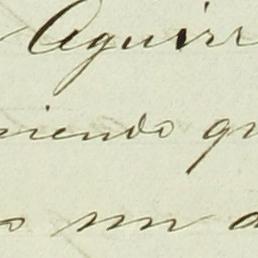 Aguirr
niendo qu
un